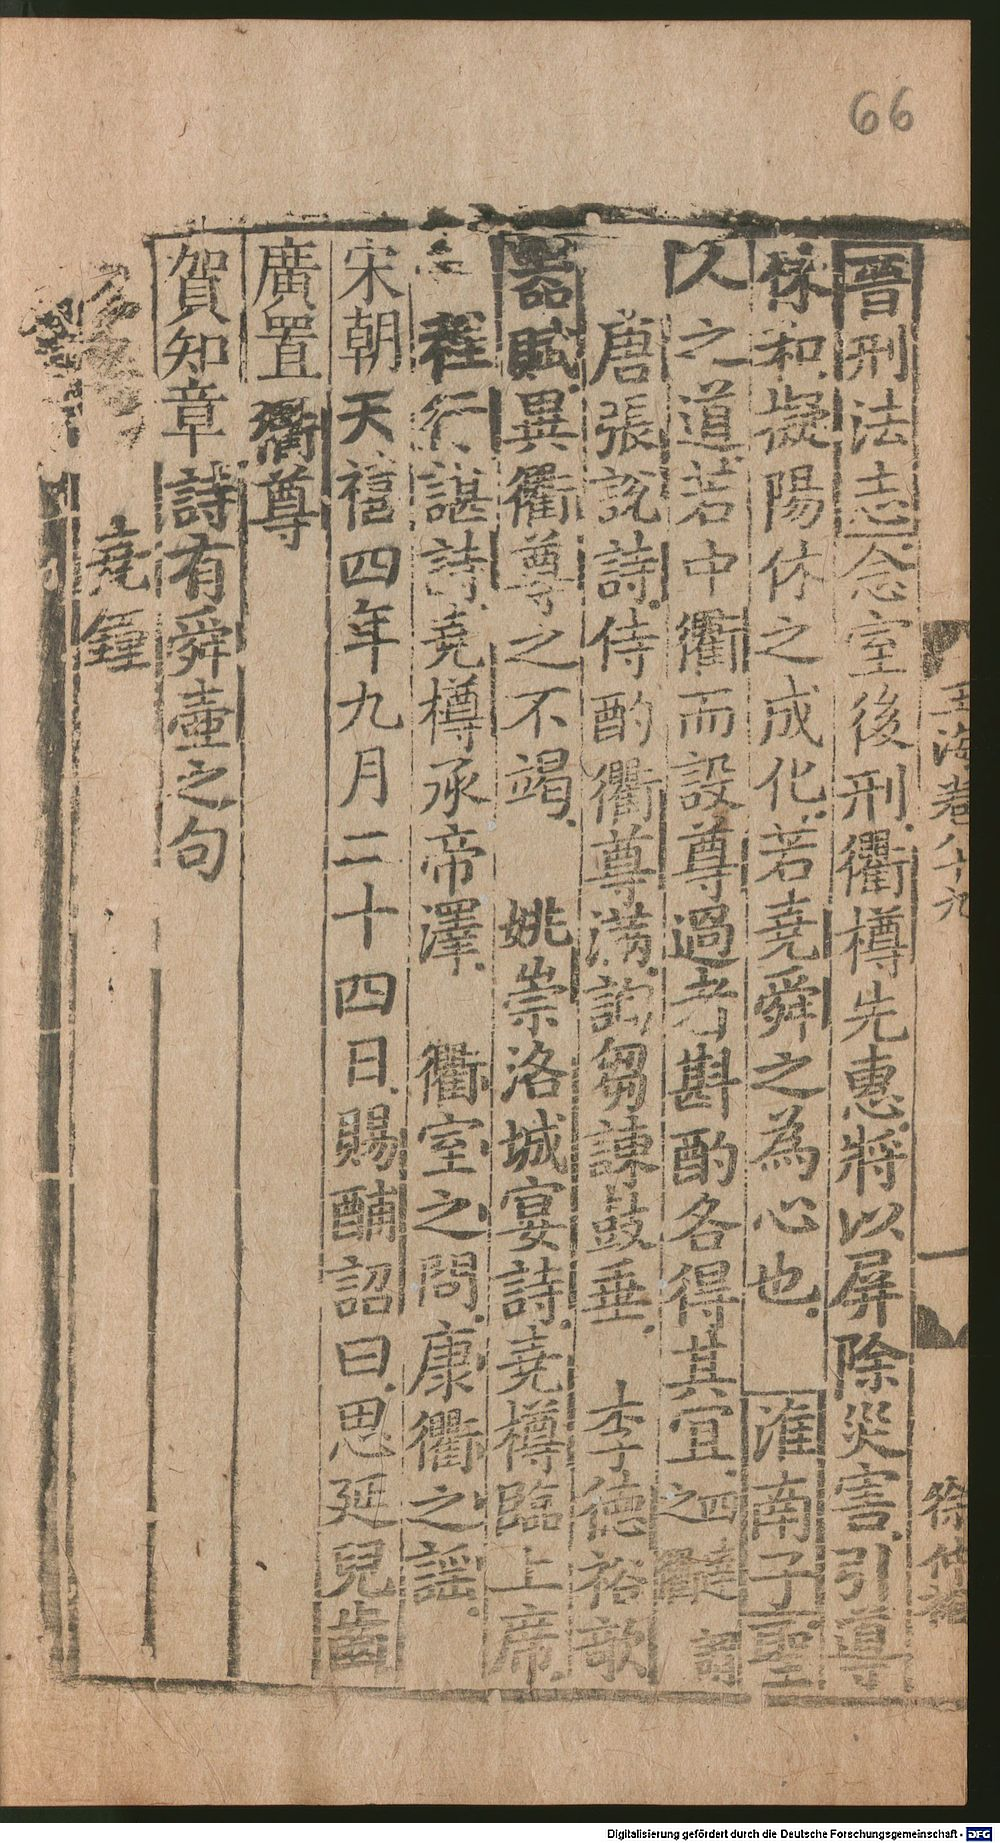 66
玉海卷八十九
徐仲裕
晉刑法志念室後刑衢樽先惠將以屏除災害引導
休和擬陽休之成化若堯舜之為心也 淮南子聖
人之道若中衢而設尊過者斟酌各得其宜
唐張說詩侍酌衢尊滿詢芻諫鼓垂 李德裕欹
器賦異衢尊之不竭 姚崇洛城宴詩堯樽臨上席
程行諶詩堯樽承帝澤 衢室之問康衢之謡
宋朝天禧四年九月二十四日賜酺詔曰思延兒齒
廣置衢尊
賀知章詩有舜壺之句
堯鍾
Digitalisierung gefördert durch die Deutsche Forschungsgemeinschaft - DFG